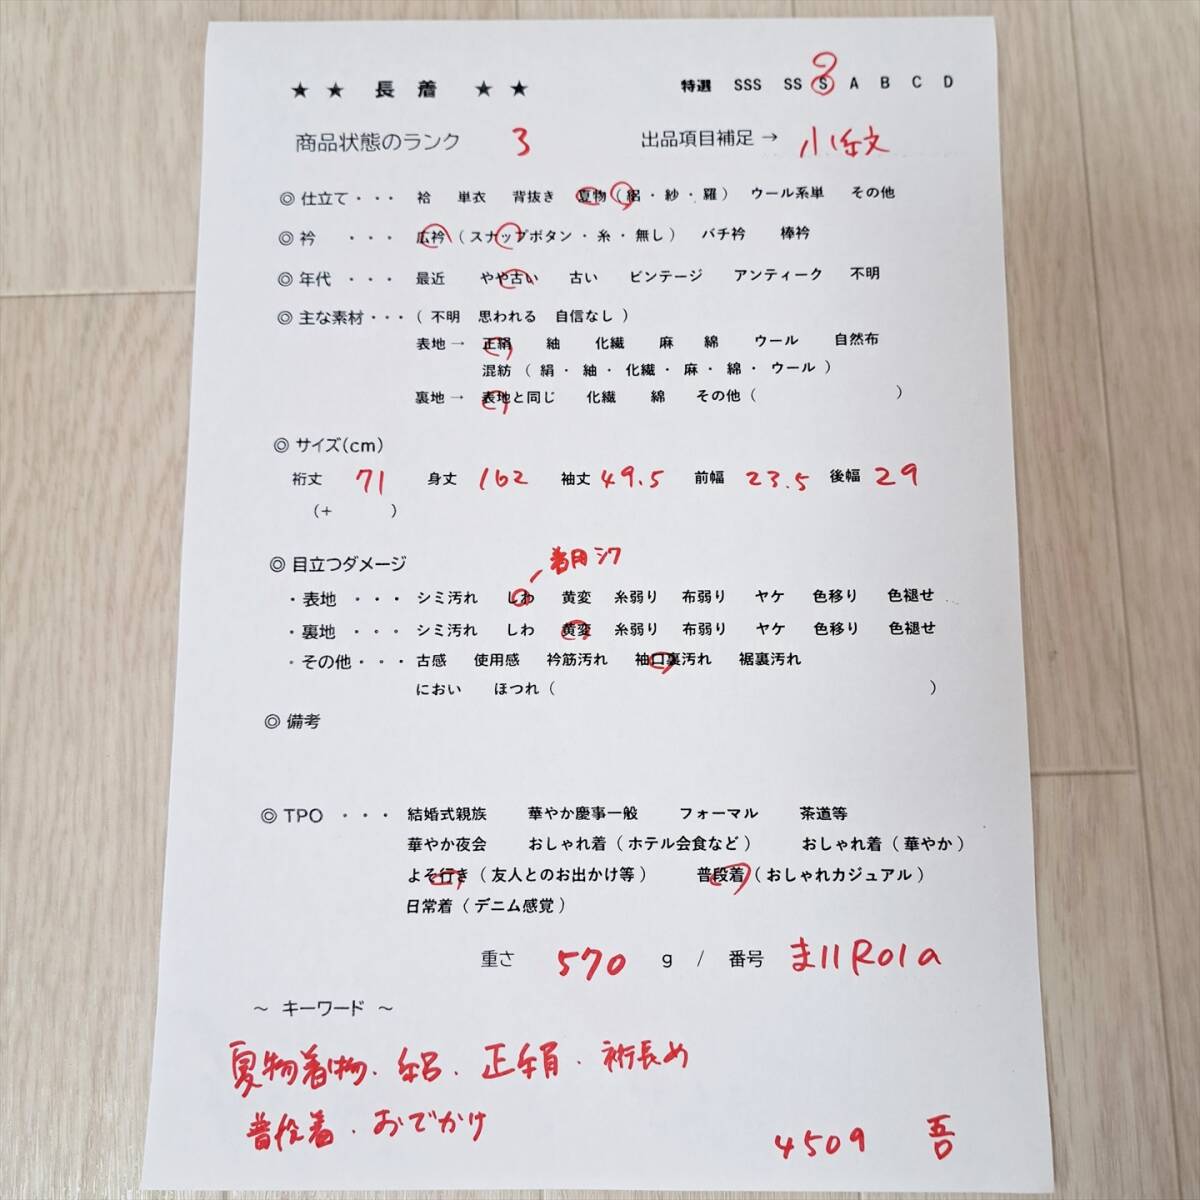 ★ ★ 長 着 ★ ★ 特選 SSS SS S A B C D
商品状態のランク 3 出品項目補足 → 小紋
◎ 仕立て・・・ 袷 単衣 背抜き 夏物 ( 絽 ・ 紗 ・ 羅 ) ウール系単 その他
◎ 衿 ・・・ 広衿 ( スナップボタン ・ 糸 ・ 無し ) バチ衿 棒衿
◎ 年代 ・・・ 最近 やや古い 古い ビンテージ アンティーク 不明
◎ 主な素材・・・ ( 不明 思われる 自信なし )
表地 → 正絹 紬 化繊 麻 綿 ウール 自然布
混紡 ( 絹 ・ 紬 ・ 化繊 ・ 麻 ・ 綿 ・ ウール )
裏地 → 表地と同じ 化繊 綿 その他 ( )
◎ サイズ(cm)
裄丈 71 身丈 162 袖丈 49.5 前幅 23.5 後幅 29
(+ )
◎ 目立つダメージ 着用シワ
・表地 ・・・ シミ汚れ しわ 黄変 糸弱り 布弱り ヤケ 色移り 色褪せ
・裏地 ・・・ シミ汚れ しわ 黄変 糸弱り 布弱り ヤケ 色移り 色褪せ
・その他・・・ 古感 使用感 衿筋汚れ 袖口裏汚れ 裾裏汚れ
におい ほつれ ( )
◎ 備考
◎ TPO ・・・ 結婚式親族 華やか慶事一般 フォーマル 茶道等
華やか夜会 おしゃれ着 ( ホテル会食など ) おしゃれ着 ( 華やか )
よそ行き ( 友人とのお出かけ等 ) 普段着 ( おしゃれカジュアル )
日常着 ( デニム感覚 )
重さ 570 g / 番号 ま11R01a
～ キーワード ～
夏物着物・絽・正絹・裄長め
普段着・おでかけ
4509 吾